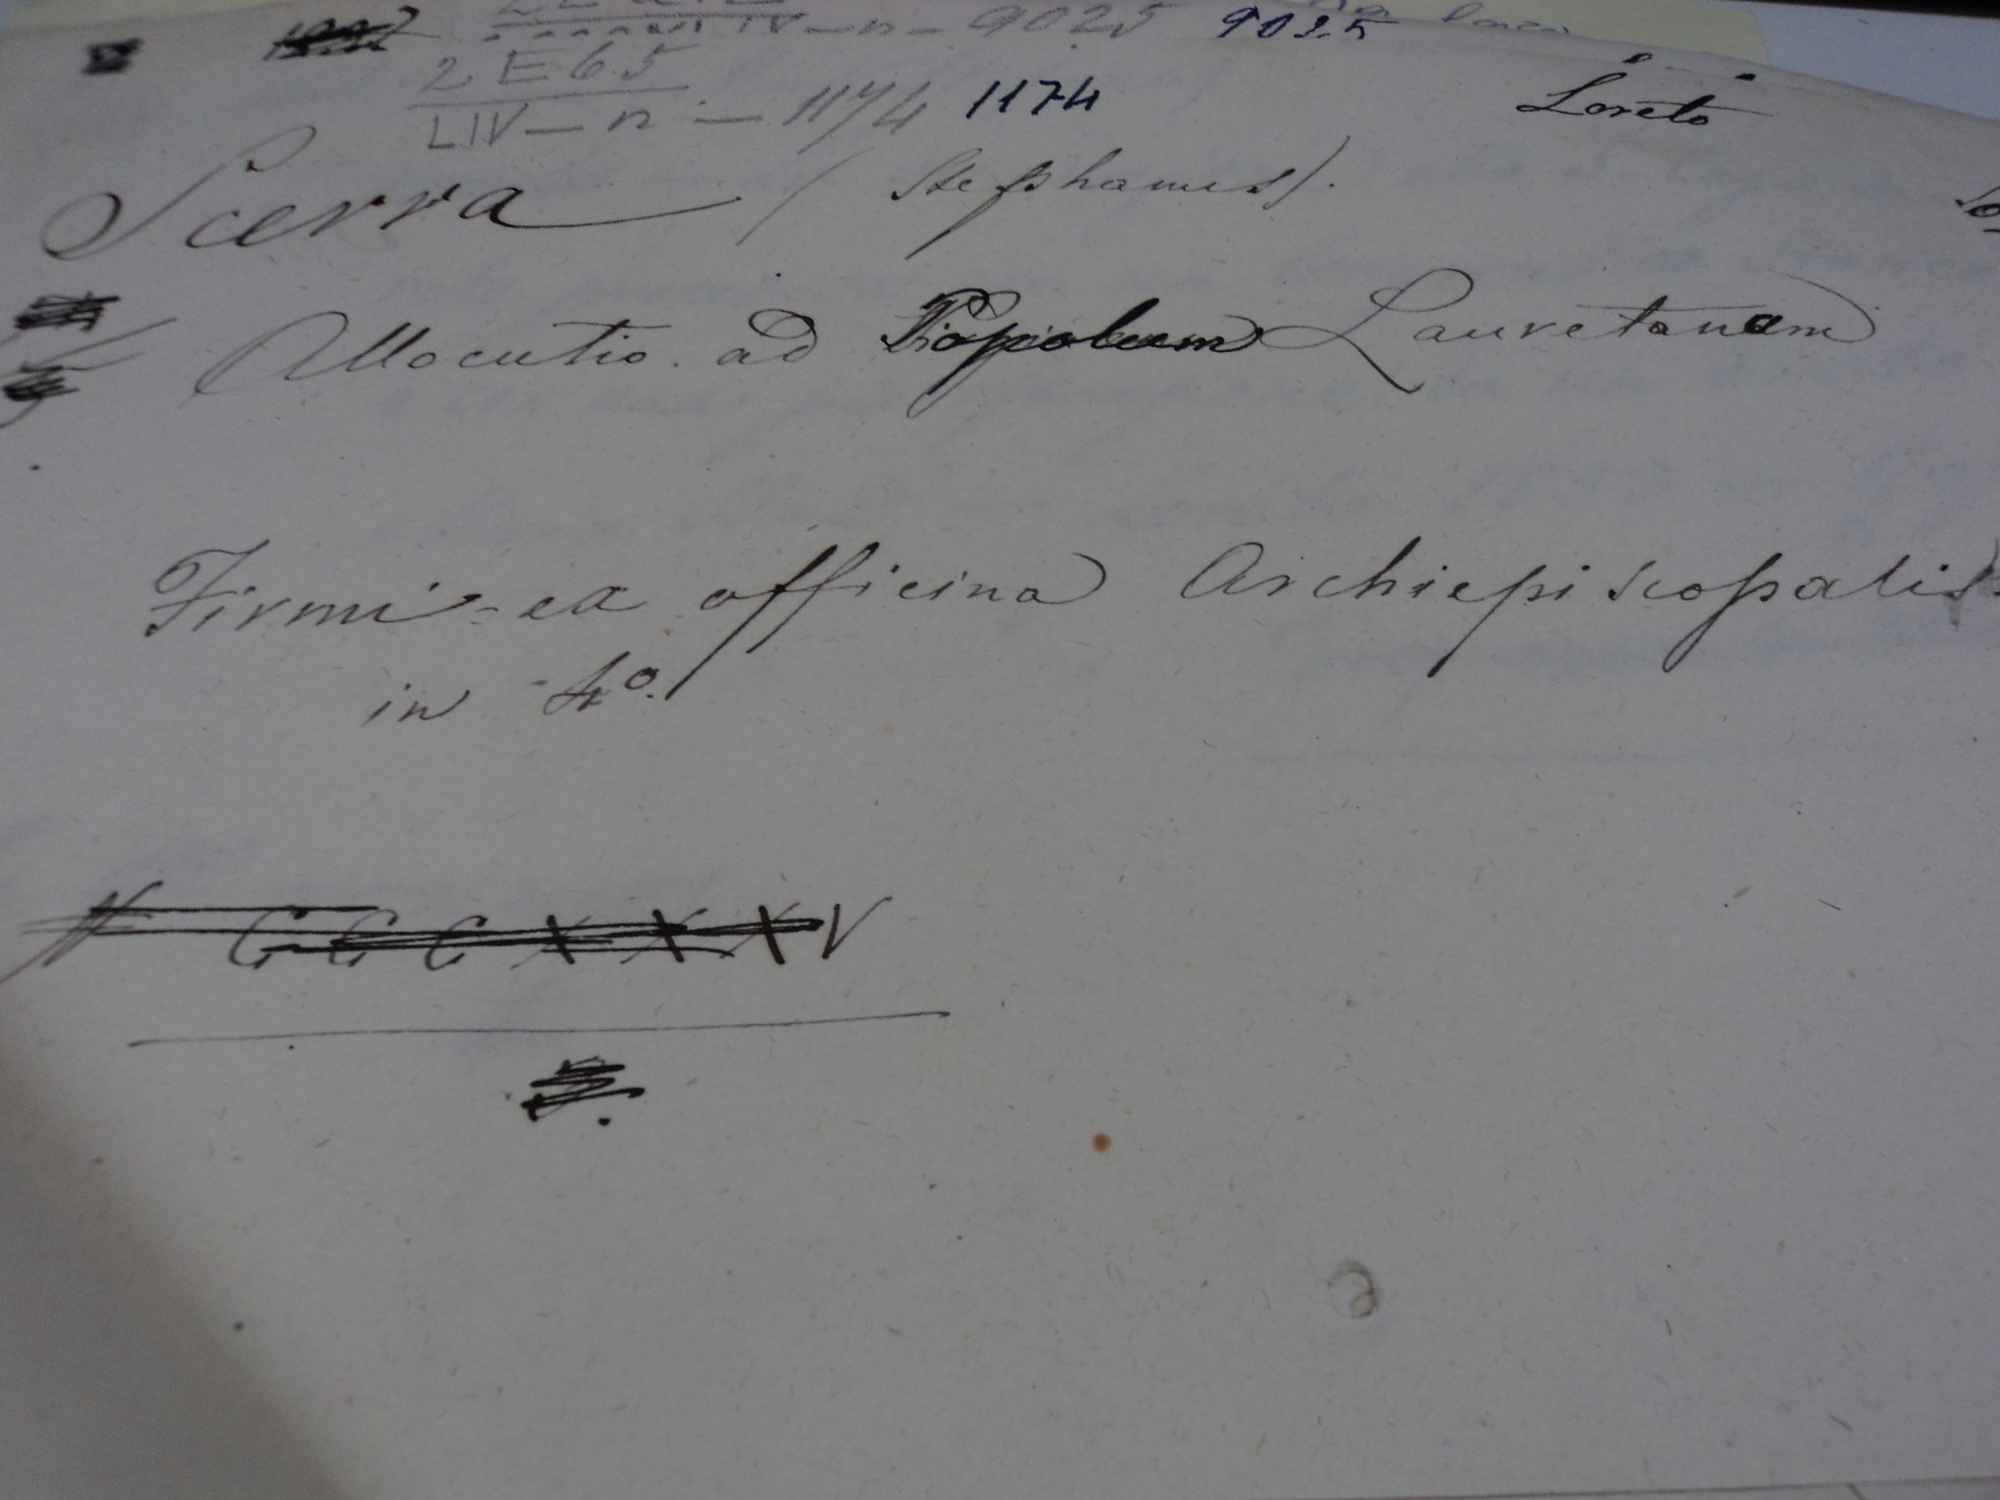 9025 9025
2 E 65
LIV — n — 1174 1174
Loreto
Scerra (Stephanus).
Allocutio ad Popolum Lauretanum
Firmi - ex officina Archiepiscopalis
in - 4º.
N CCCXXXV